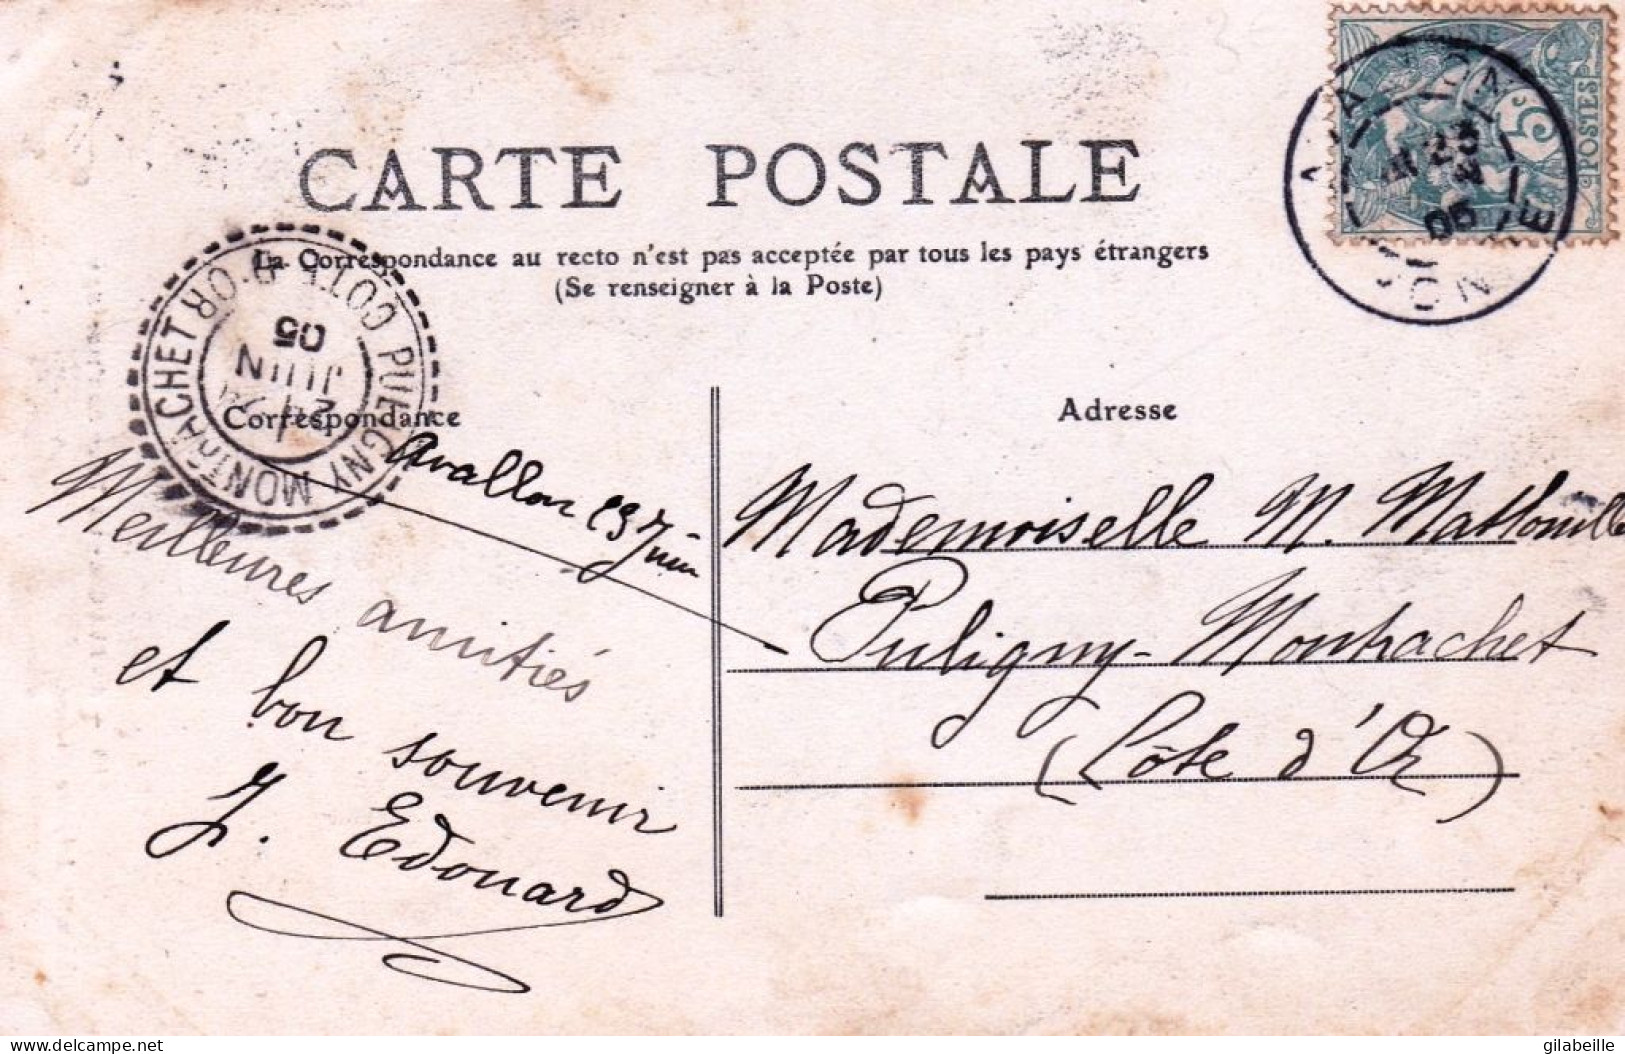 CARTE POSTALE
La Correspondance au recto n'est pas acceptée par tous les pays étrangers
(Se renseigner à la Poste)
5c
POSTES
23
05
YONNE
PULIGNY MONTRACHET
COTE D'OR
JUIN
05
Correspondance
Adresse
Avallon 23 Juin
Meilleures amitiés
et bon souvenir
J. Edouard
Mademoiselle M.
Puligny-Montrachet
(Côte d'Or)
delcampe.net
gilabeille